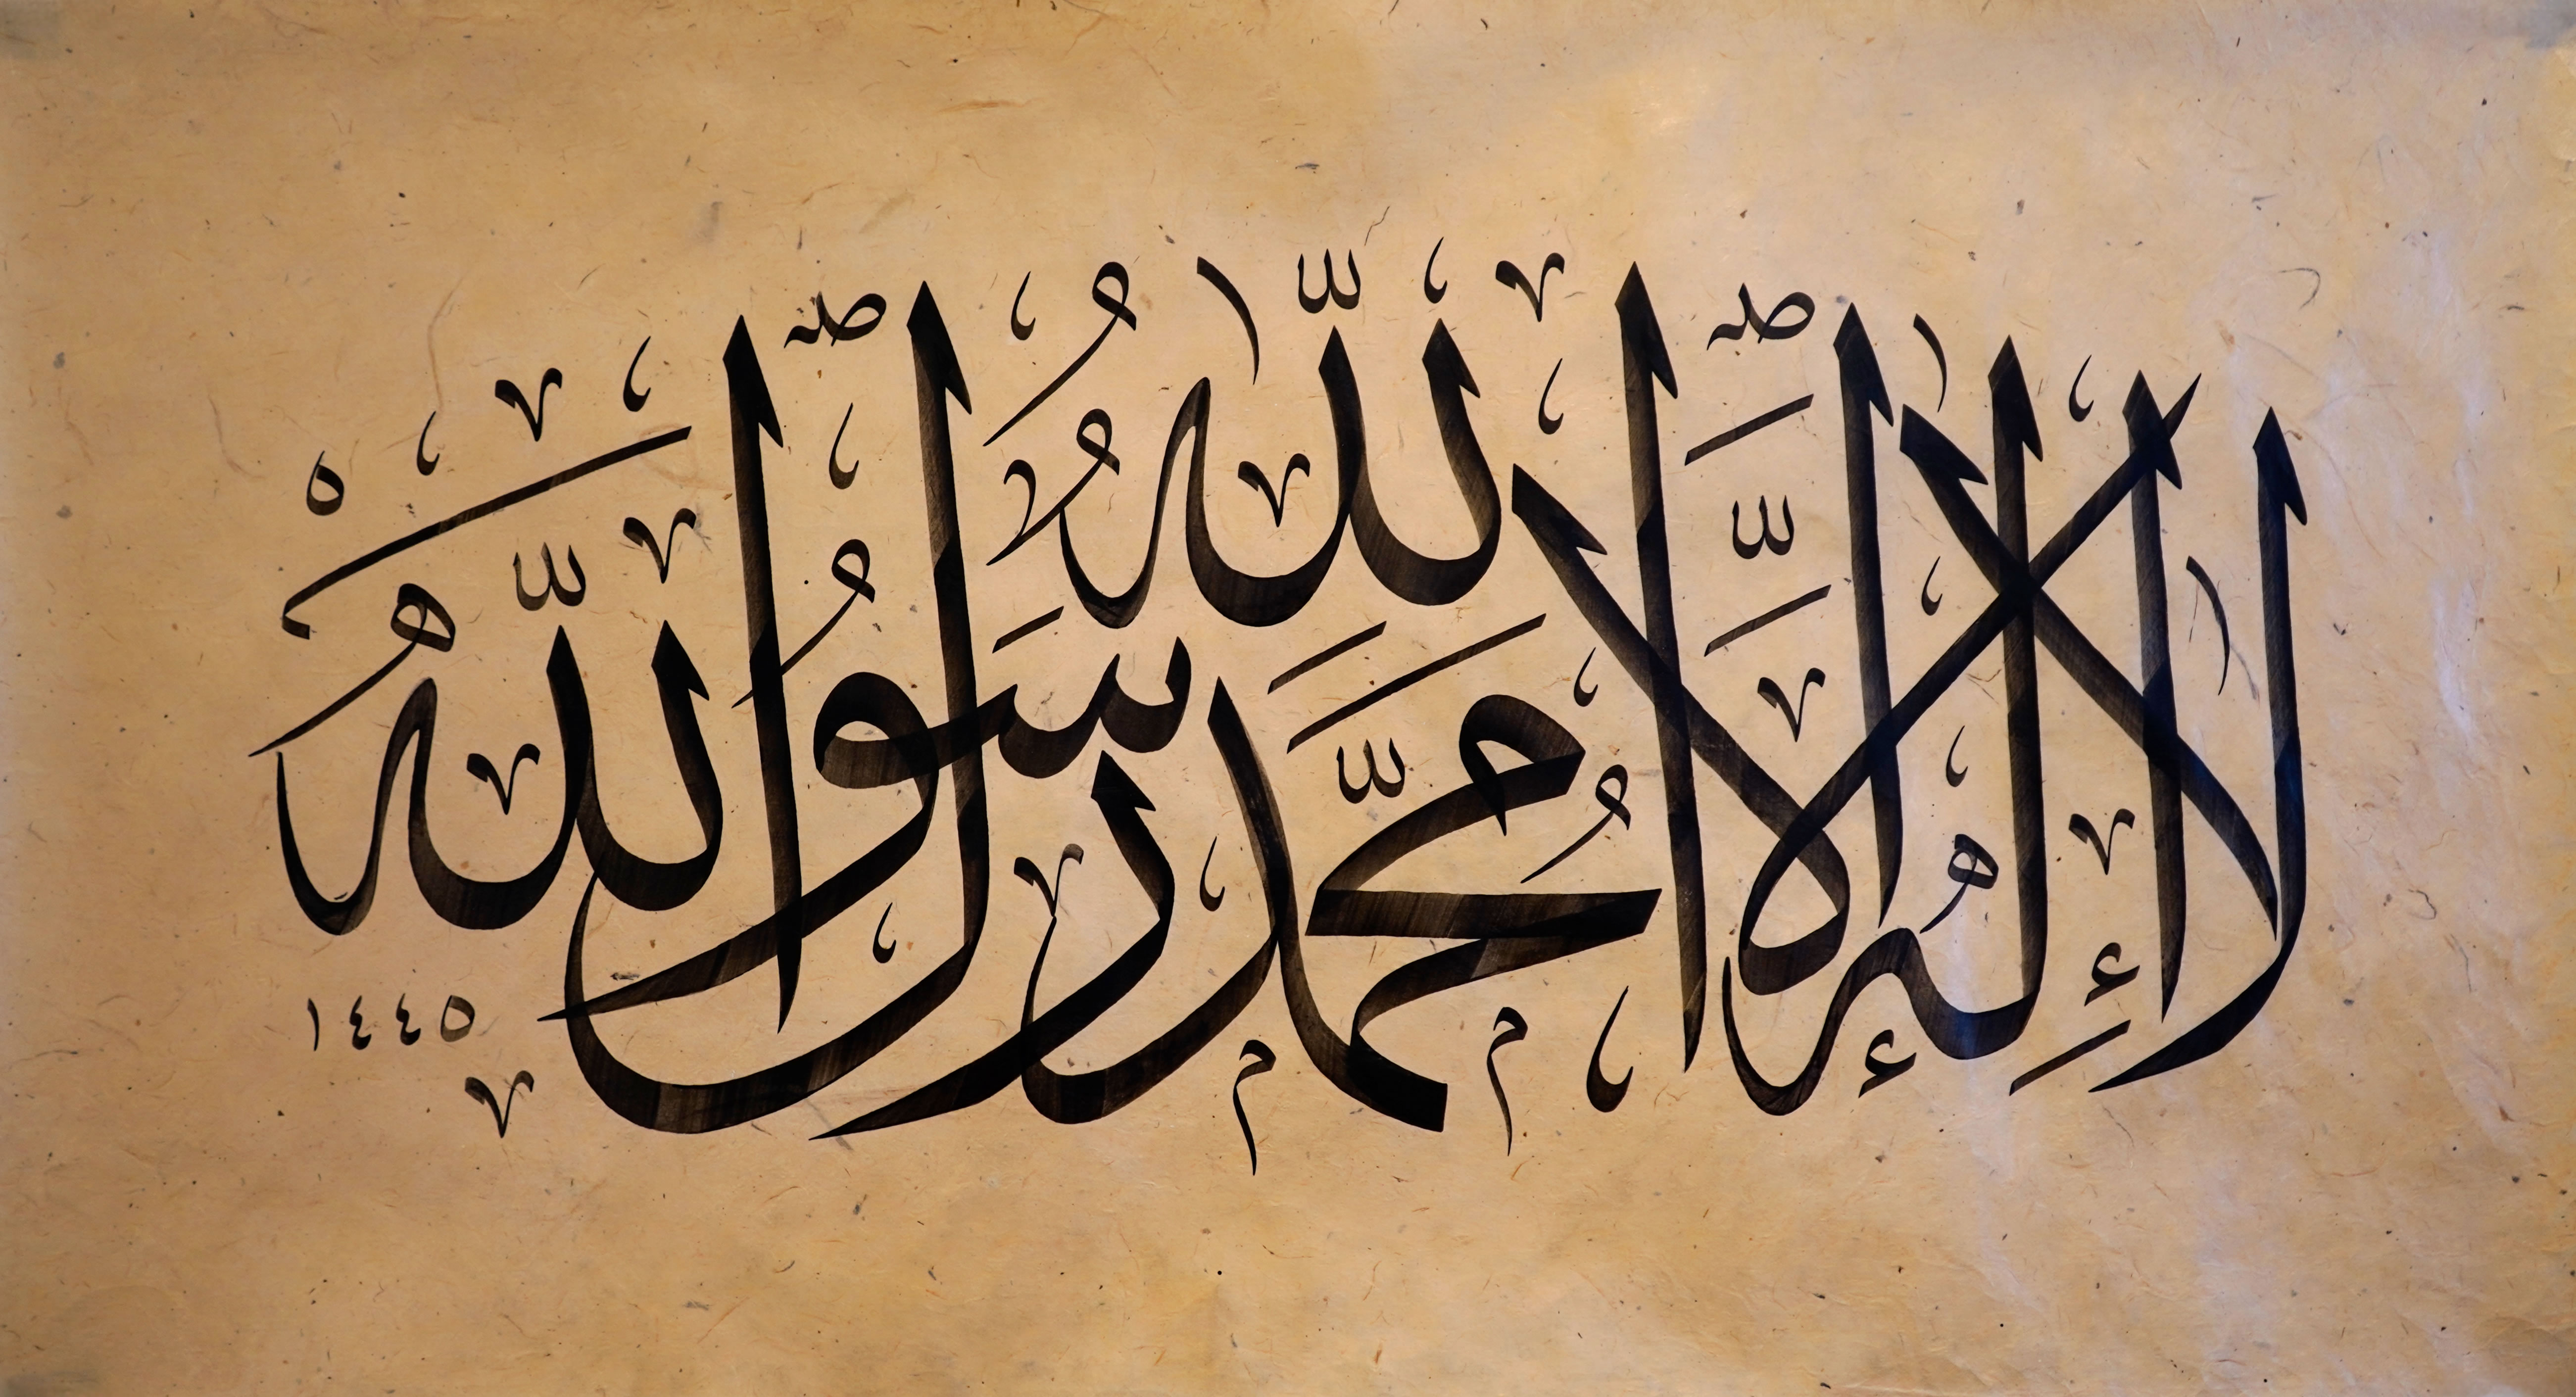 لَا إِلٰهَ إِلَّا اللّٰهُ مُحَمَّدٌ رَسُولُ اللّٰهِ
١٤٤٥